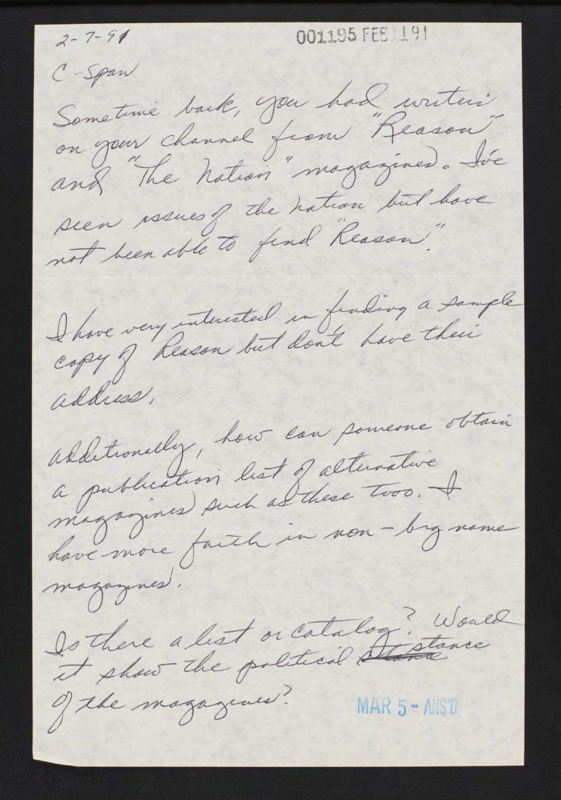 2-7-91
001195 FEB 19 91
C-Span
Sometime back, you had writers
on your channel from "Reason"
and "The Nation" magazines. I've
seen issues of the nation but have
not been able to find "Reason".
I have very interested in finding a sample
copy of Reason but don't have their
address.
Additionally, how can someone obtain
a publication list of alternative
magazines such as these two. I
have more faith in non-big name
magazines.
Is there a list or catalog? Would
it show the political stance
of the magazines?
MAR 5 - ANS'D